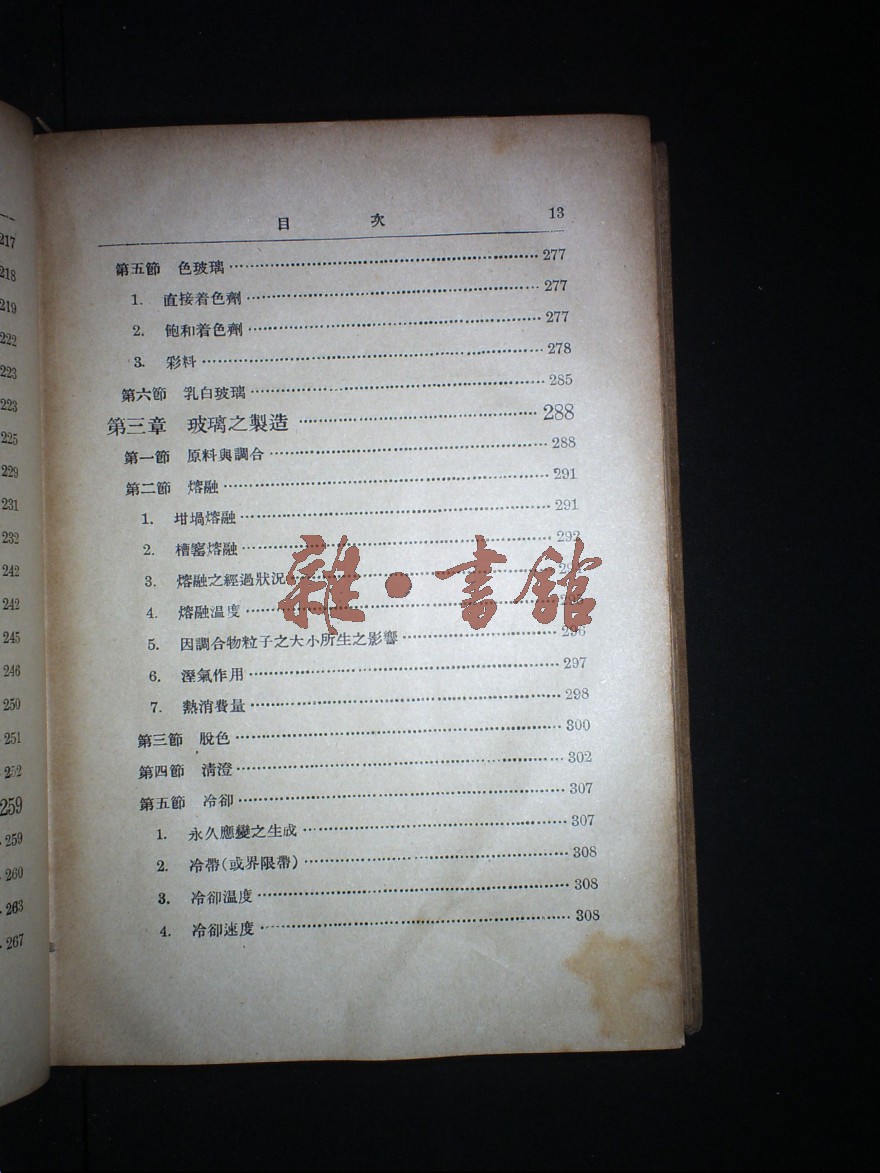 217
218
219
222
223
223
225
229
231
232
242
242
245
246
250
251
252
259
259
260
263
267
目次 13
第五節 色玻璃 277
1. 直接着色劑 277
2. 飽和着色劑 277
3. 彩料 278
第六節 乳白玻璃 285
第三章 玻璃之製造 288
第一節 原料與調合 288
第二節 熔融 291
1. 坩堝熔融 291
2. 槽窰熔融 292
3. 熔融之經過狀況
4. 熔融温度
5. 因調合物粒子之大小所生之影響 296
6. 溼氣作用 297
7. 熱消費量 298
第三節 脱色 300
第四節 清澄 302
第五節 冷卻 307
1. 永久應變之生成 307
2. 冷帶(或界限帶) 308
3. 冷卻温度 308
4. 冷卻速度 308
雜·書館